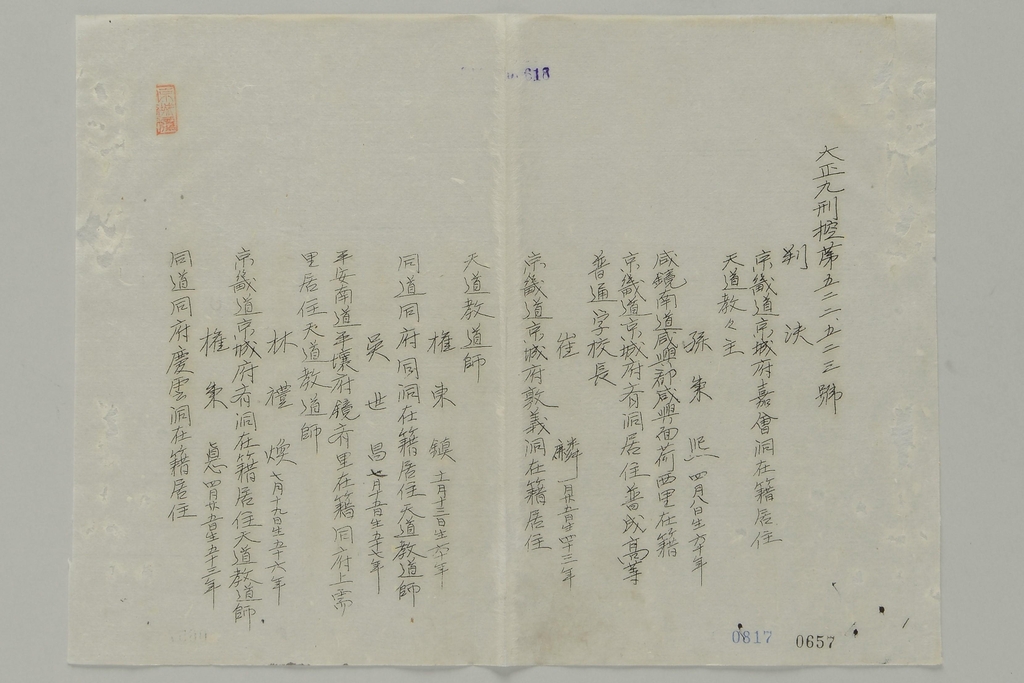 大正九刑控第五二二、五二三號
判決
京畿道京城府嘉會洞在籍居住
天道教々主
孫秉熙 四月八日生六十年
咸鏡南道咸興郡咸興面荷西里在籍
京畿道京城府齊洞居住普成高等
普通学校長
崔麟 一月廿五日生四十三年
京畿道京城府敦義洞在籍居住
天道教道師
權東鎮 十二月十三日生六十年
同道同府同洞在籍居住天道教道師
吳世昌 七月十五日生五十七年
平安南道平壤府鏡齊里在籍同府上需
里居住天道教道師
林禮煥 七月十九日生五十六年
京畿道京城府齊洞在籍居住天道教道師
權秉悳 四月廿五日生五十三年
同道同府慶雲洞在籍居住
618
0817
0657